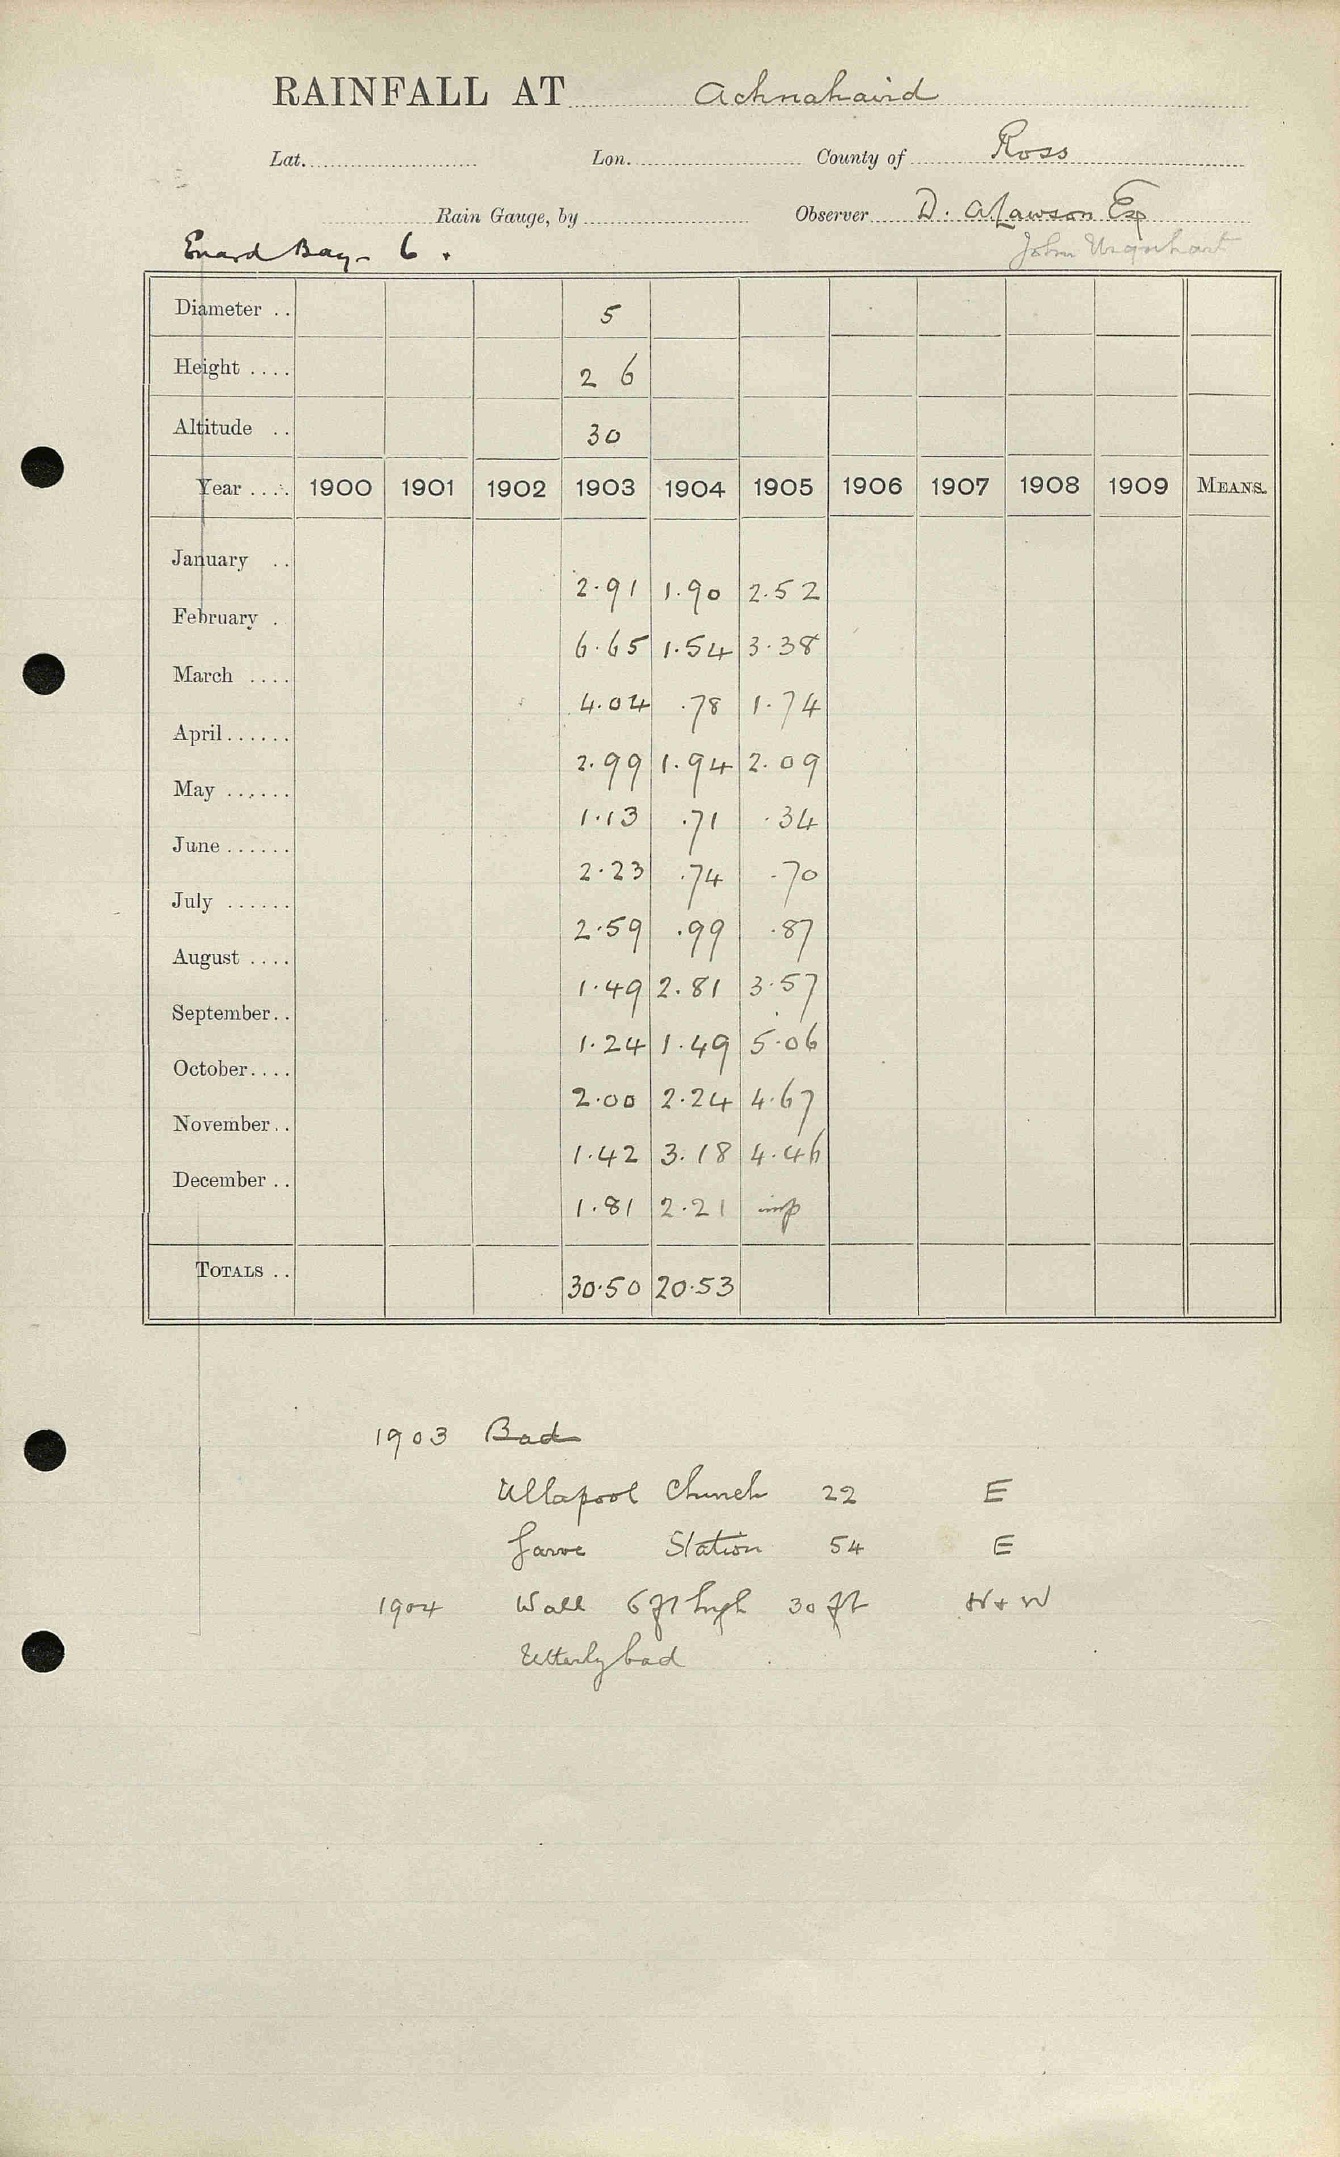 RAINFALL AT Achnahaird
Lat. Lon. County of Ross
Rain Gauge, by Observer D. A. Lawson Esq
Enard Bay 6. John Urquhart
Diameter .. 5
Height .... 2 6
Altitude .. 30
Year .... 1900 1901 1902 1903 1904 1905 1906 1907 1908 1909 MEANS.
January .. 2.91 1.90 2.52
February . 6.65 1.54 3.38
March .... 4.04 .78 1.74
April...... 2.99 1.94 2.09
May ...... 1.13 .71 .34
June ...... 2.23 .74 .70
July ...... 2.59 .99 .87
August .... 1.49 2.81 3.57
September.. 1.24 1.49 5.06
October.... 2.00 2.24 4.67
November.. 1.42 3.18 4.46
December .. 1.81 2.21 imp
TOTALS .. 30.50 20.53
1903 Bad
Ullapool Church 22 E
Garve Station 54 E
1904 Wall 6 ft high 30 ft N + W
Utterly bad